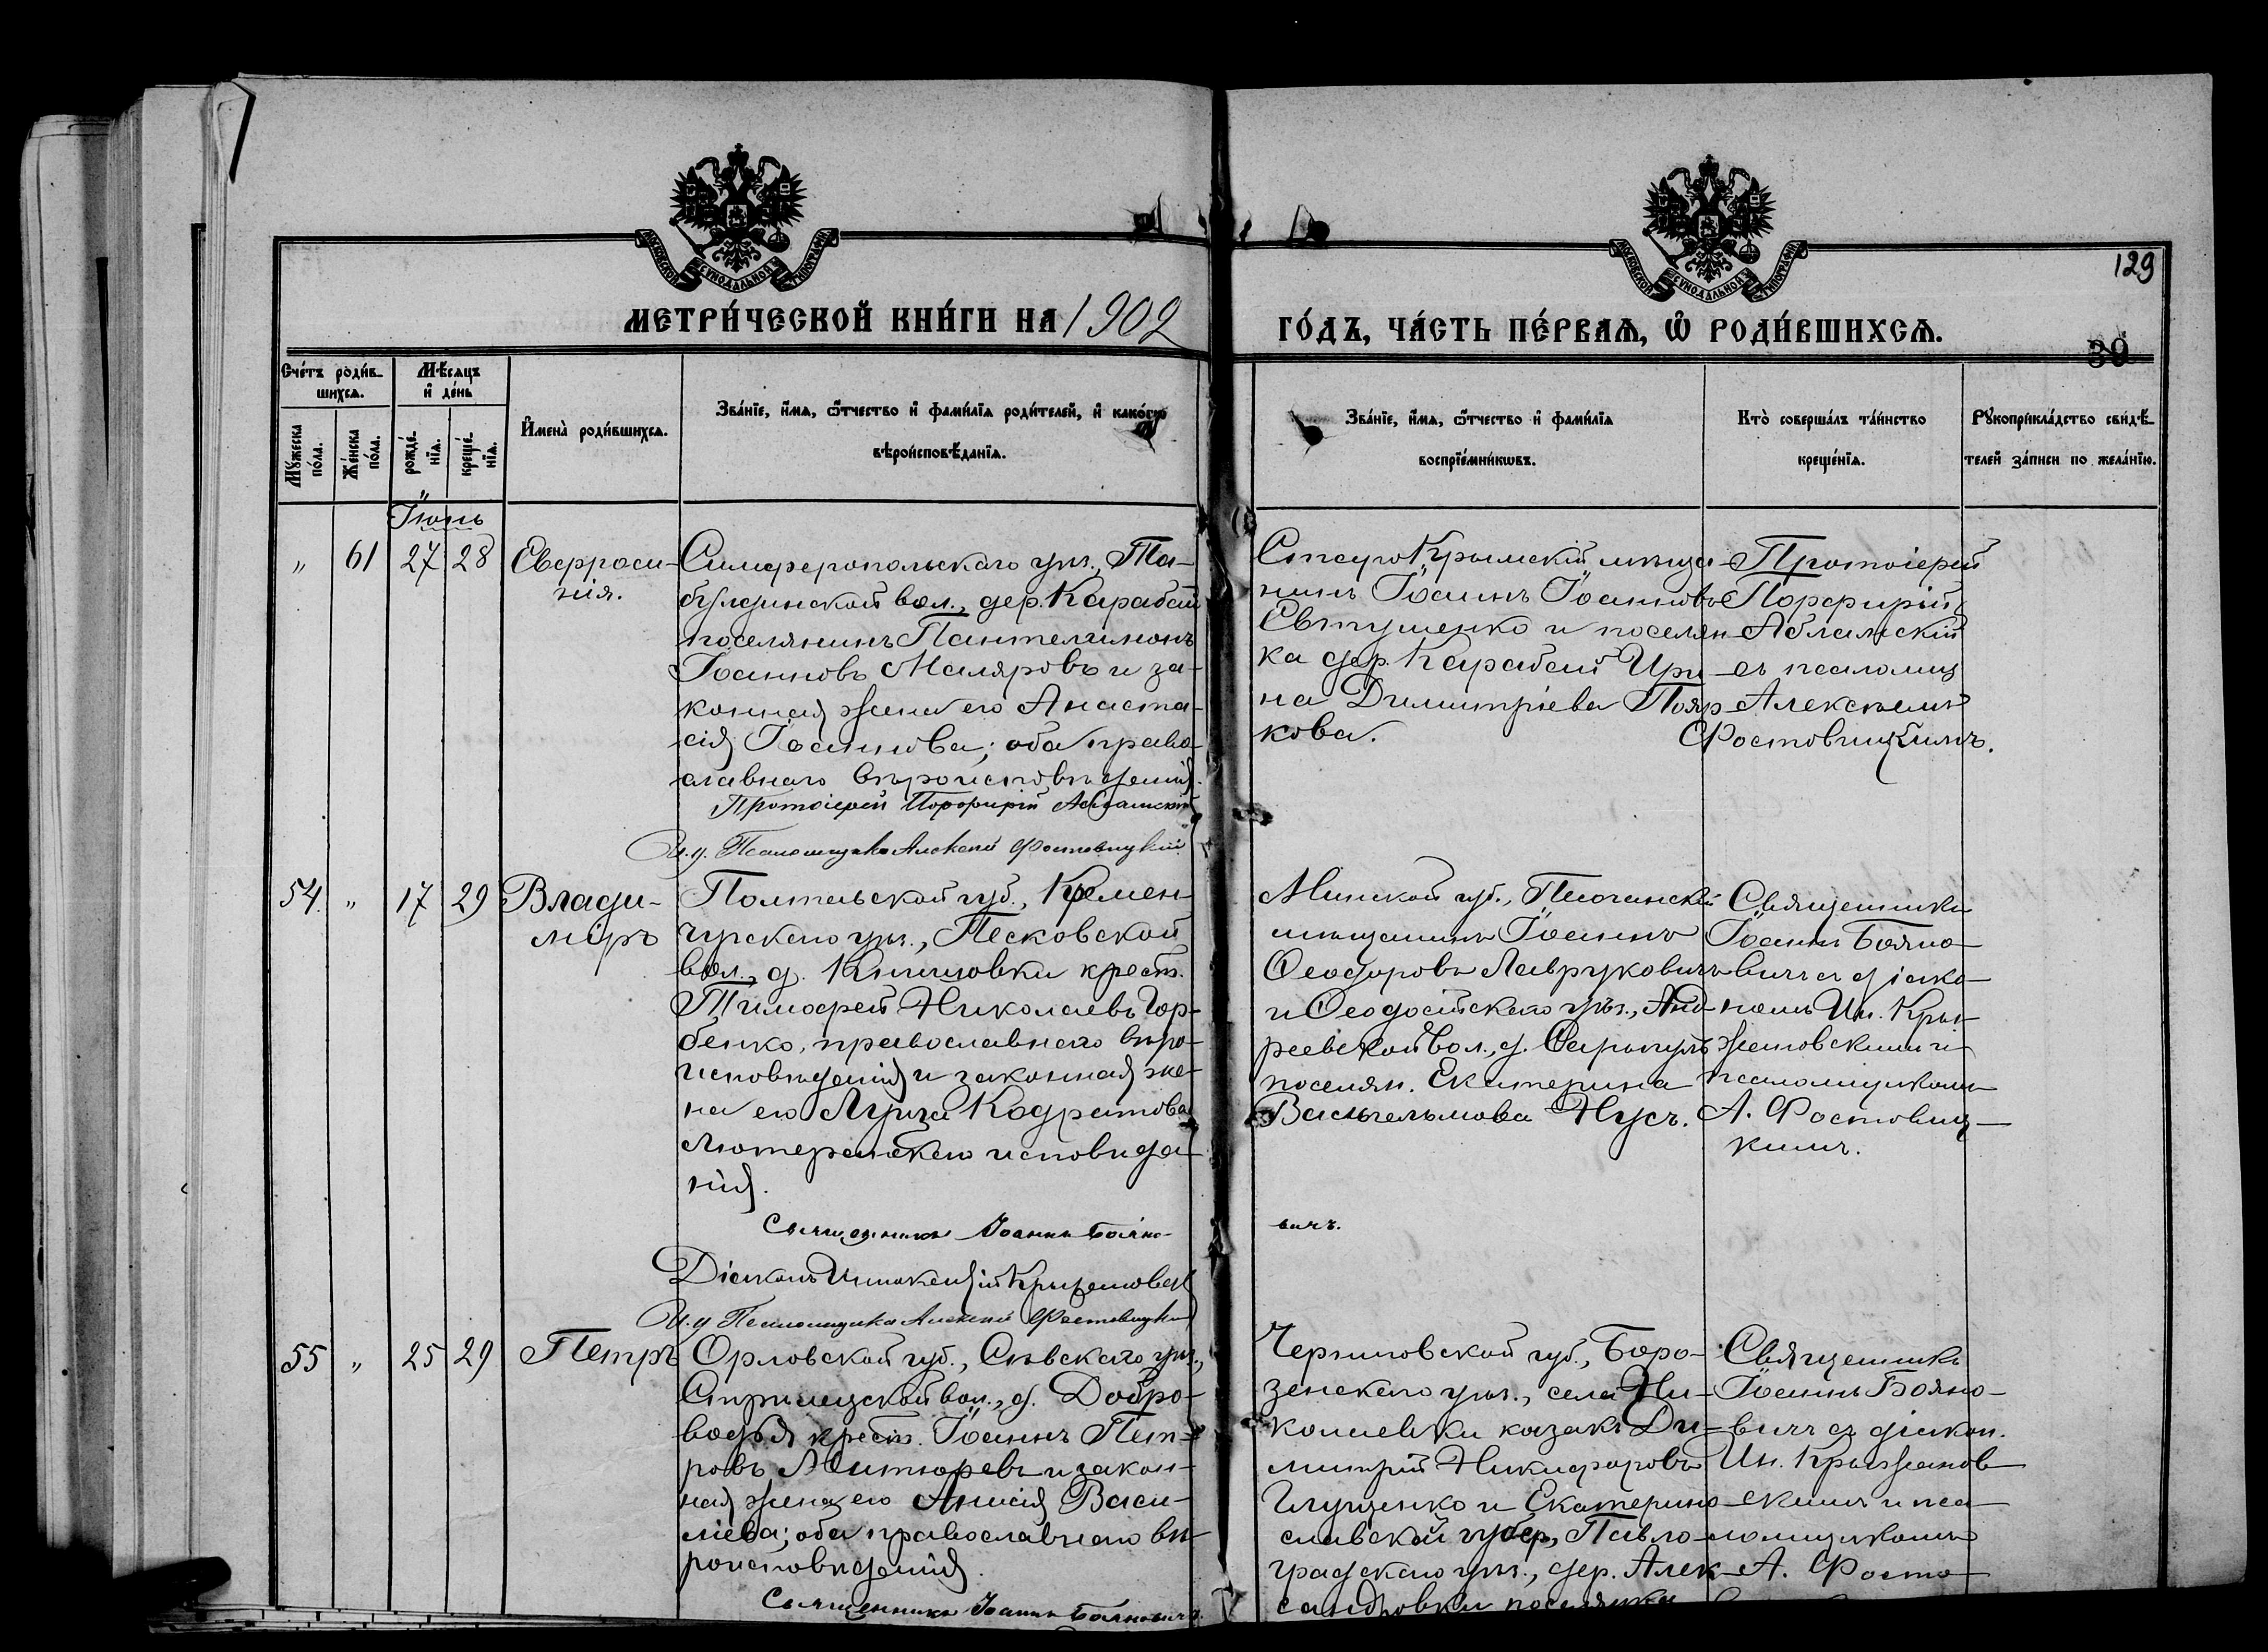 129
МЕТРИ́ЧЕСКОЙ КНИ́ГИ НА 1902
ГО́ДЪ, ЧА́СТЬ ПЕ́РВАѦ, Ѡ҆ РОДИ́ВШИХСѦ.
39
Сче́тъ роди́в-
шихсѧ.
Мѣ́сѧцъ
и҆ де́нь
И҆мена̀ роди́вшихсѧ.
Зва́нїе, и҆́мѧ, ѻ҆́тчество и҆ фами́лїѧ роди́телей, и҆ како́гѡ
вѣроисповѣ́данїѧ.
Мꙋ́жеска
по́ла.
Же́нска
по́ла.
рожде́-
нїѧ.
креще́-
нїѧ.
Зва́нїе, и҆́мѧ, ѻ҆́тчество и҆ фами́лїѧ
воспрїе́мникѡвъ.
Кто̀ соверша́лъ та́инство
креще́нїѧ.
Рꙋкоприкла́дство свидѣ́-
телей за́писи по жела́нїю.
Іюнь
" 61 27 28
Евфроси-
нія.
Симферопольскаго уѣз., Та-
булдинской вол., дер. Карабай
поселянинъ Пантелеимонъ
Іоанновъ Маляровъ и за-
конная жена его Анаста-
сія Іоаннова; оба право-
славнаго вѣроисповѣданія.
Протоіерей Порфирій
И. д. Псаломщика Алексѣй Фостовицкій
Старо-Крымскій мѣща-
нинъ Іоаннъ Іоанновъ
Евтушенко и поселян-
ка дер. Карабай Ири-
на Димитріева Пояр-
кова.
Протоіерей
Порфирій
съ псаломщ
Алексѣемъ
Фостовицкимъ.
54 " 17 29
Влади-
міръ
Полтавской губ., Кремен-
чугскаго уѣз., Песковской
вол., д. крест.
Тимофей Николаевъ Гор-
бенко, православнаго вѣро-
исповѣданія и законная же-
на его Луиза Кодратова
лютеранскаго исповѣда-
нія.
Священникъ Іоаннъ Бояно-
вичъ.
Діаконъ Иннокентій
И. д. Псаломщика Алексѣй Фостовицкій
Минской губ.,
мѣщанинъ Іоаннъ
Ѳеодоровъ Лавруковичъ
и Ѳеодосійскаго уѣз., Анд-
реевской вол., д.
поселян. Екатерина
Вильгельмова Нусъ.
Священникъ
Іоаннъ Бояно-
вичъ съ діако-
номъ Ин. Кры-
жановскимъ и
псаломщикомъ
А. Фостовиц-
кимъ.
55 " 25 29
Петръ
Орловской губ., Сѣвскаго уѣз.,
вол., д. Добро-
водья крест. Іоаннъ Пет-
ровъ Митюревъ и закон-
ная жена его Анисія Васи-
ліева; оба православнаго вѣ-
роисповѣданія.
Священникъ Іоаннъ Бояновичъ.
Черниговской губ., Боро-
зенскаго уѣз., села Ни-
колаевки казакъ Ди-
митрій Никифоровъ
Глущенко и Екатерино-
славской губер., Павло-
градскаго уѣз., дер. Алек-
сандровки поселянка
Священникъ
Іоаннъ Бояно-
вичъ съ діакон.
Ин. Крыжанов-
скимъ и пса-
ломщикомъ
А. Фосто-